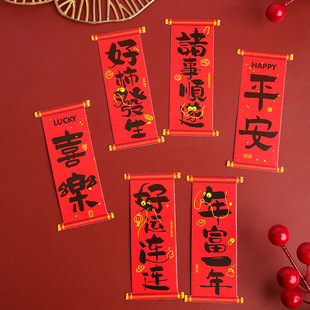 好柿發生
諸事順遂
HAPPY
平安
LUCKY
喜樂
好运连连
年富一年